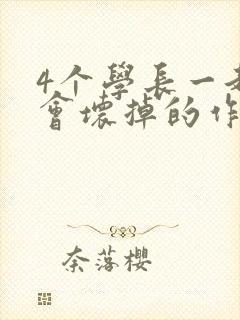 4个學長一
會壞掉的作
奈落櫻